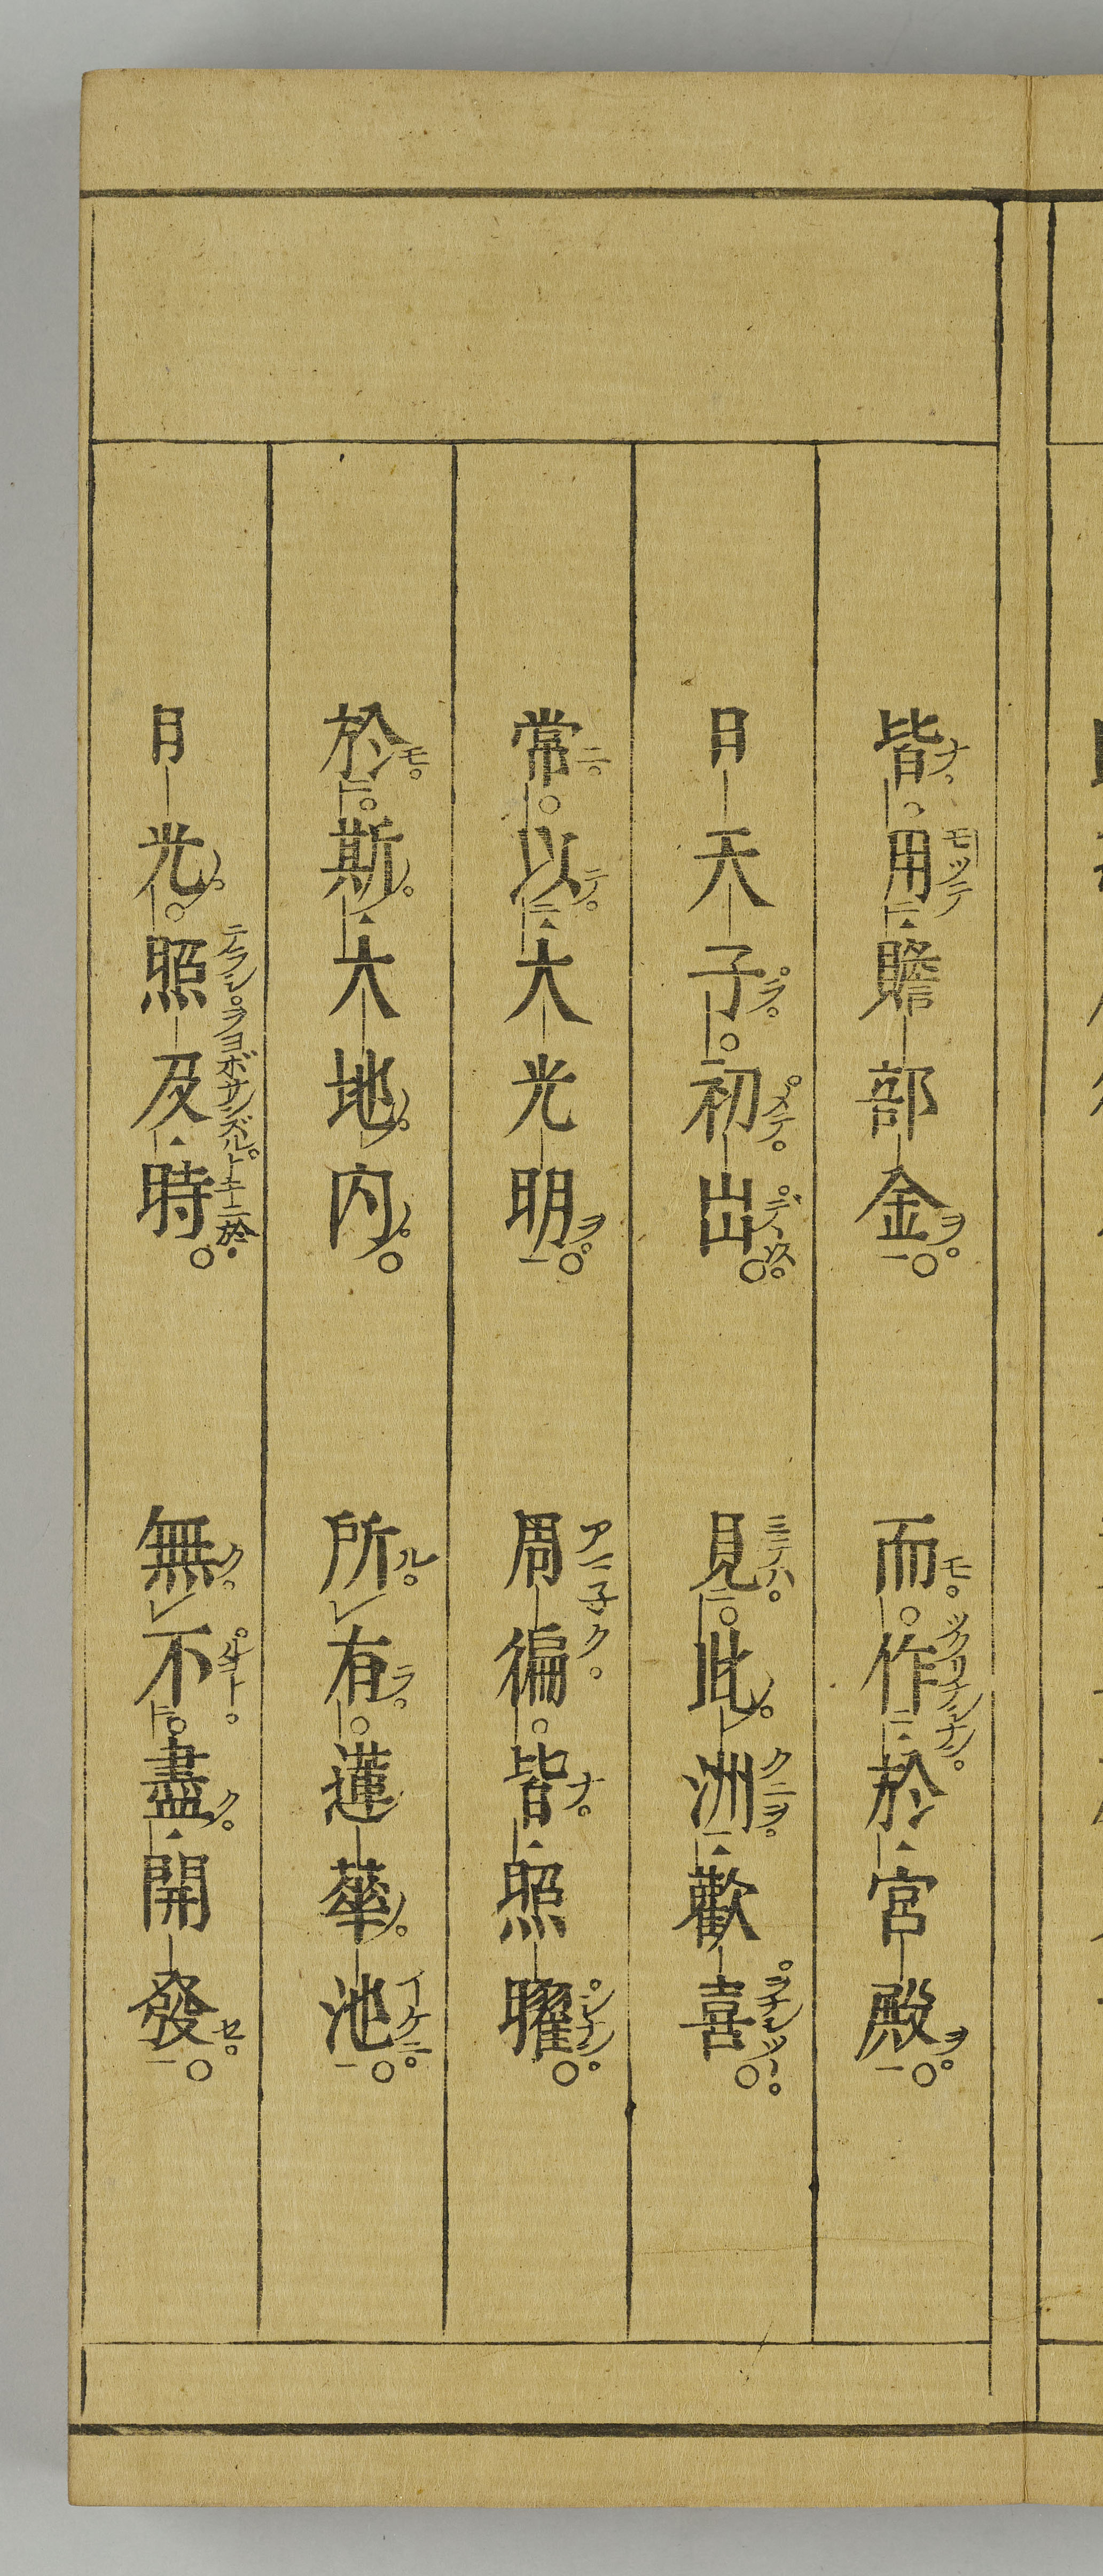 皆用贍部金 而作於宮殿
日天子初出 見此洲歡喜
常以大光明 周徧皆照耀
於斯大地內 所有蓮華池
日光照及時 無不盡開發